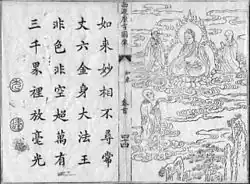 如來妙相不尋常
丈六金身大法王
非色非空超萬有
三千界裡放毫光
卷首